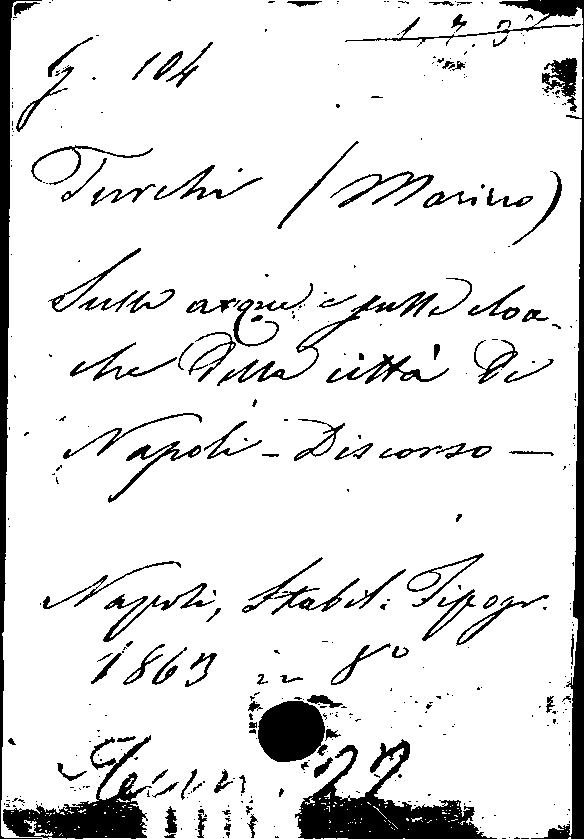 1. 7. 3
G. 104
Turchi (Marino)
Sulle acque e sulle cloa-
che della città di
Napoli - Discorso -
Napoli, Stabil: Tipogr.
1863 in 8º